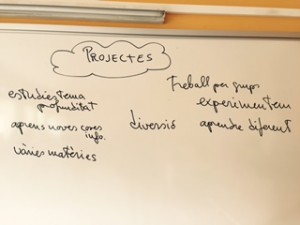 PROJECTES
estudies tema
profunditat
aprens noves coses
info.
vàries matèries
diversió
Treball per grups
experimentem
aprendre diferent